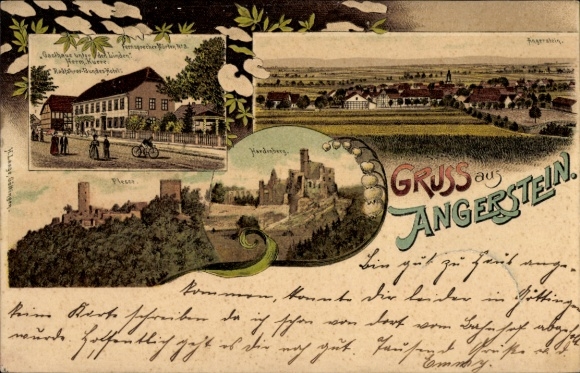 Fernsprecher Nörten Nº 2
"Gasthaus unter den Linden"
Herm. Kurre
Radfahrer-Bundes-Hotel.
Angerstein.
Plesse.
Hardenberg.
GRUSS aus
ANGERSTEIN.
Bin gut zu Haus ange-
kommen, konnte dir leider in Götting
keine Karte schreiben da ich schon von dort vom Bahnhof
wurde. Hoffentlich geht es dir noch gut Tausend Grüße
Emmy.